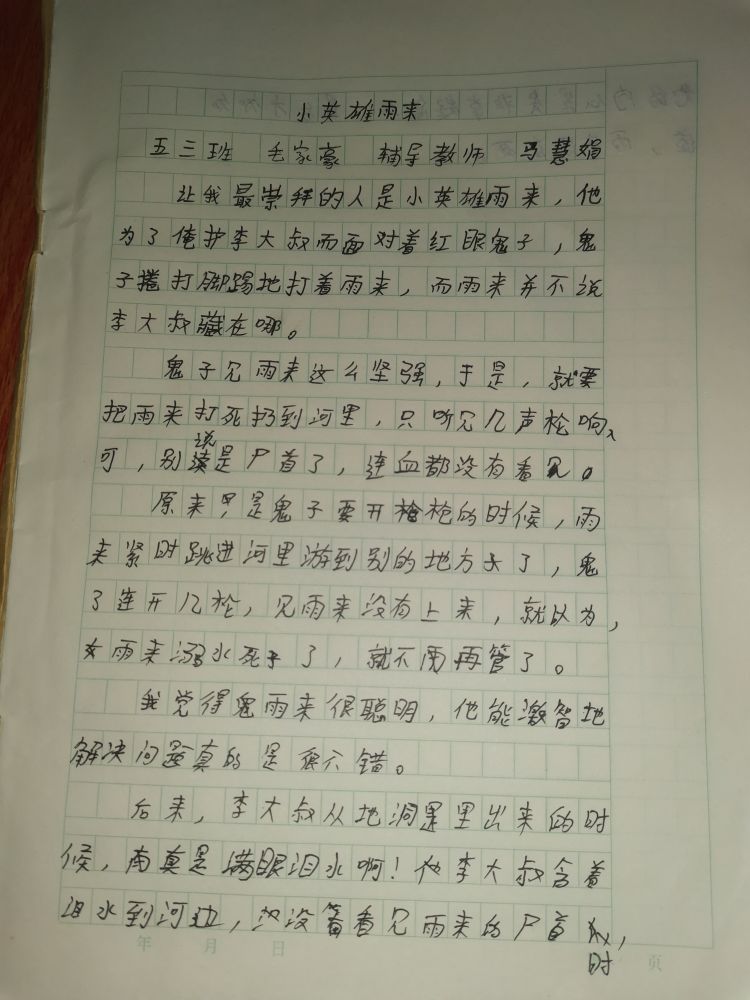 小英雄雨来
五三班 毛家豪 辅导教师 马慧娟
让我最崇拜的人是小英雄雨来，他
为了俺护李大叔而面对着红眼鬼子，鬼
子捲打脚踢地打着雨来，而雨来并不说
李大叔藏在哪。
鬼子见雨来这么坚强，于是，就要
把雨来打死扔到河里，只听见几声枪响，
可，别说是尸首了，连血都没有看见。
原来是鬼子要开枪的时候，雨
来紧时跳进河里游到别的地方去了，鬼
了连开几枪，见雨来没有上来，就以为，
雨来溺水死了，就不用再管了。
我觉得雨来很聪明，他能激智地
解决问题真的是很不错。
后来，李大叔从地洞里出来的时
候，真是满眼泪水啊！他李大叔含着
泪水到河边，没看见雨来的尸首时，
年 月 日 页